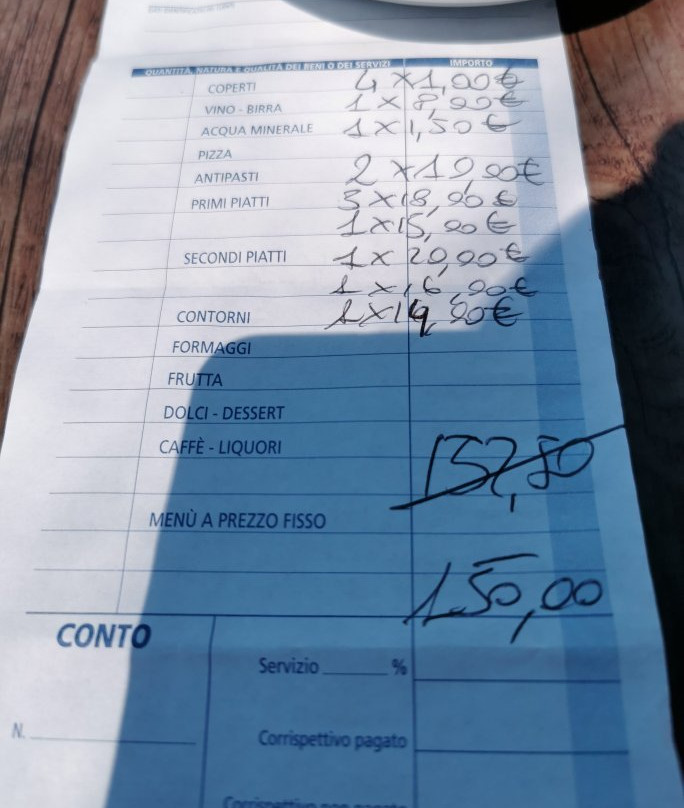 QUANTITÀ, NATURA E QUALITÀ DEI BENI O DEI SERVIZI IMPORTO
COPERTI 4 x 1,00 €
VINO - BIRRA 1 x 8,00 €
ACQUA MINERALE 1 x 1,50 €
PIZZA
ANTIPASTI 2 x 10,00 €
PRIMI PIATTI 3 x 18,00 €
1 x 15,00 €
SECONDI PIATTI 1 x 20,00 €
1 x 16,00 €
CONTORNI 1 x 14,00 €
FORMAGGI
FRUTTA
DOLCI - DESSERT
CAFFÈ - LIQUORI 152,50
MENÙ A PREZZO FISSO
150,00
CONTO
Servizio ______ %
N. ______
Corrispettivo pagato